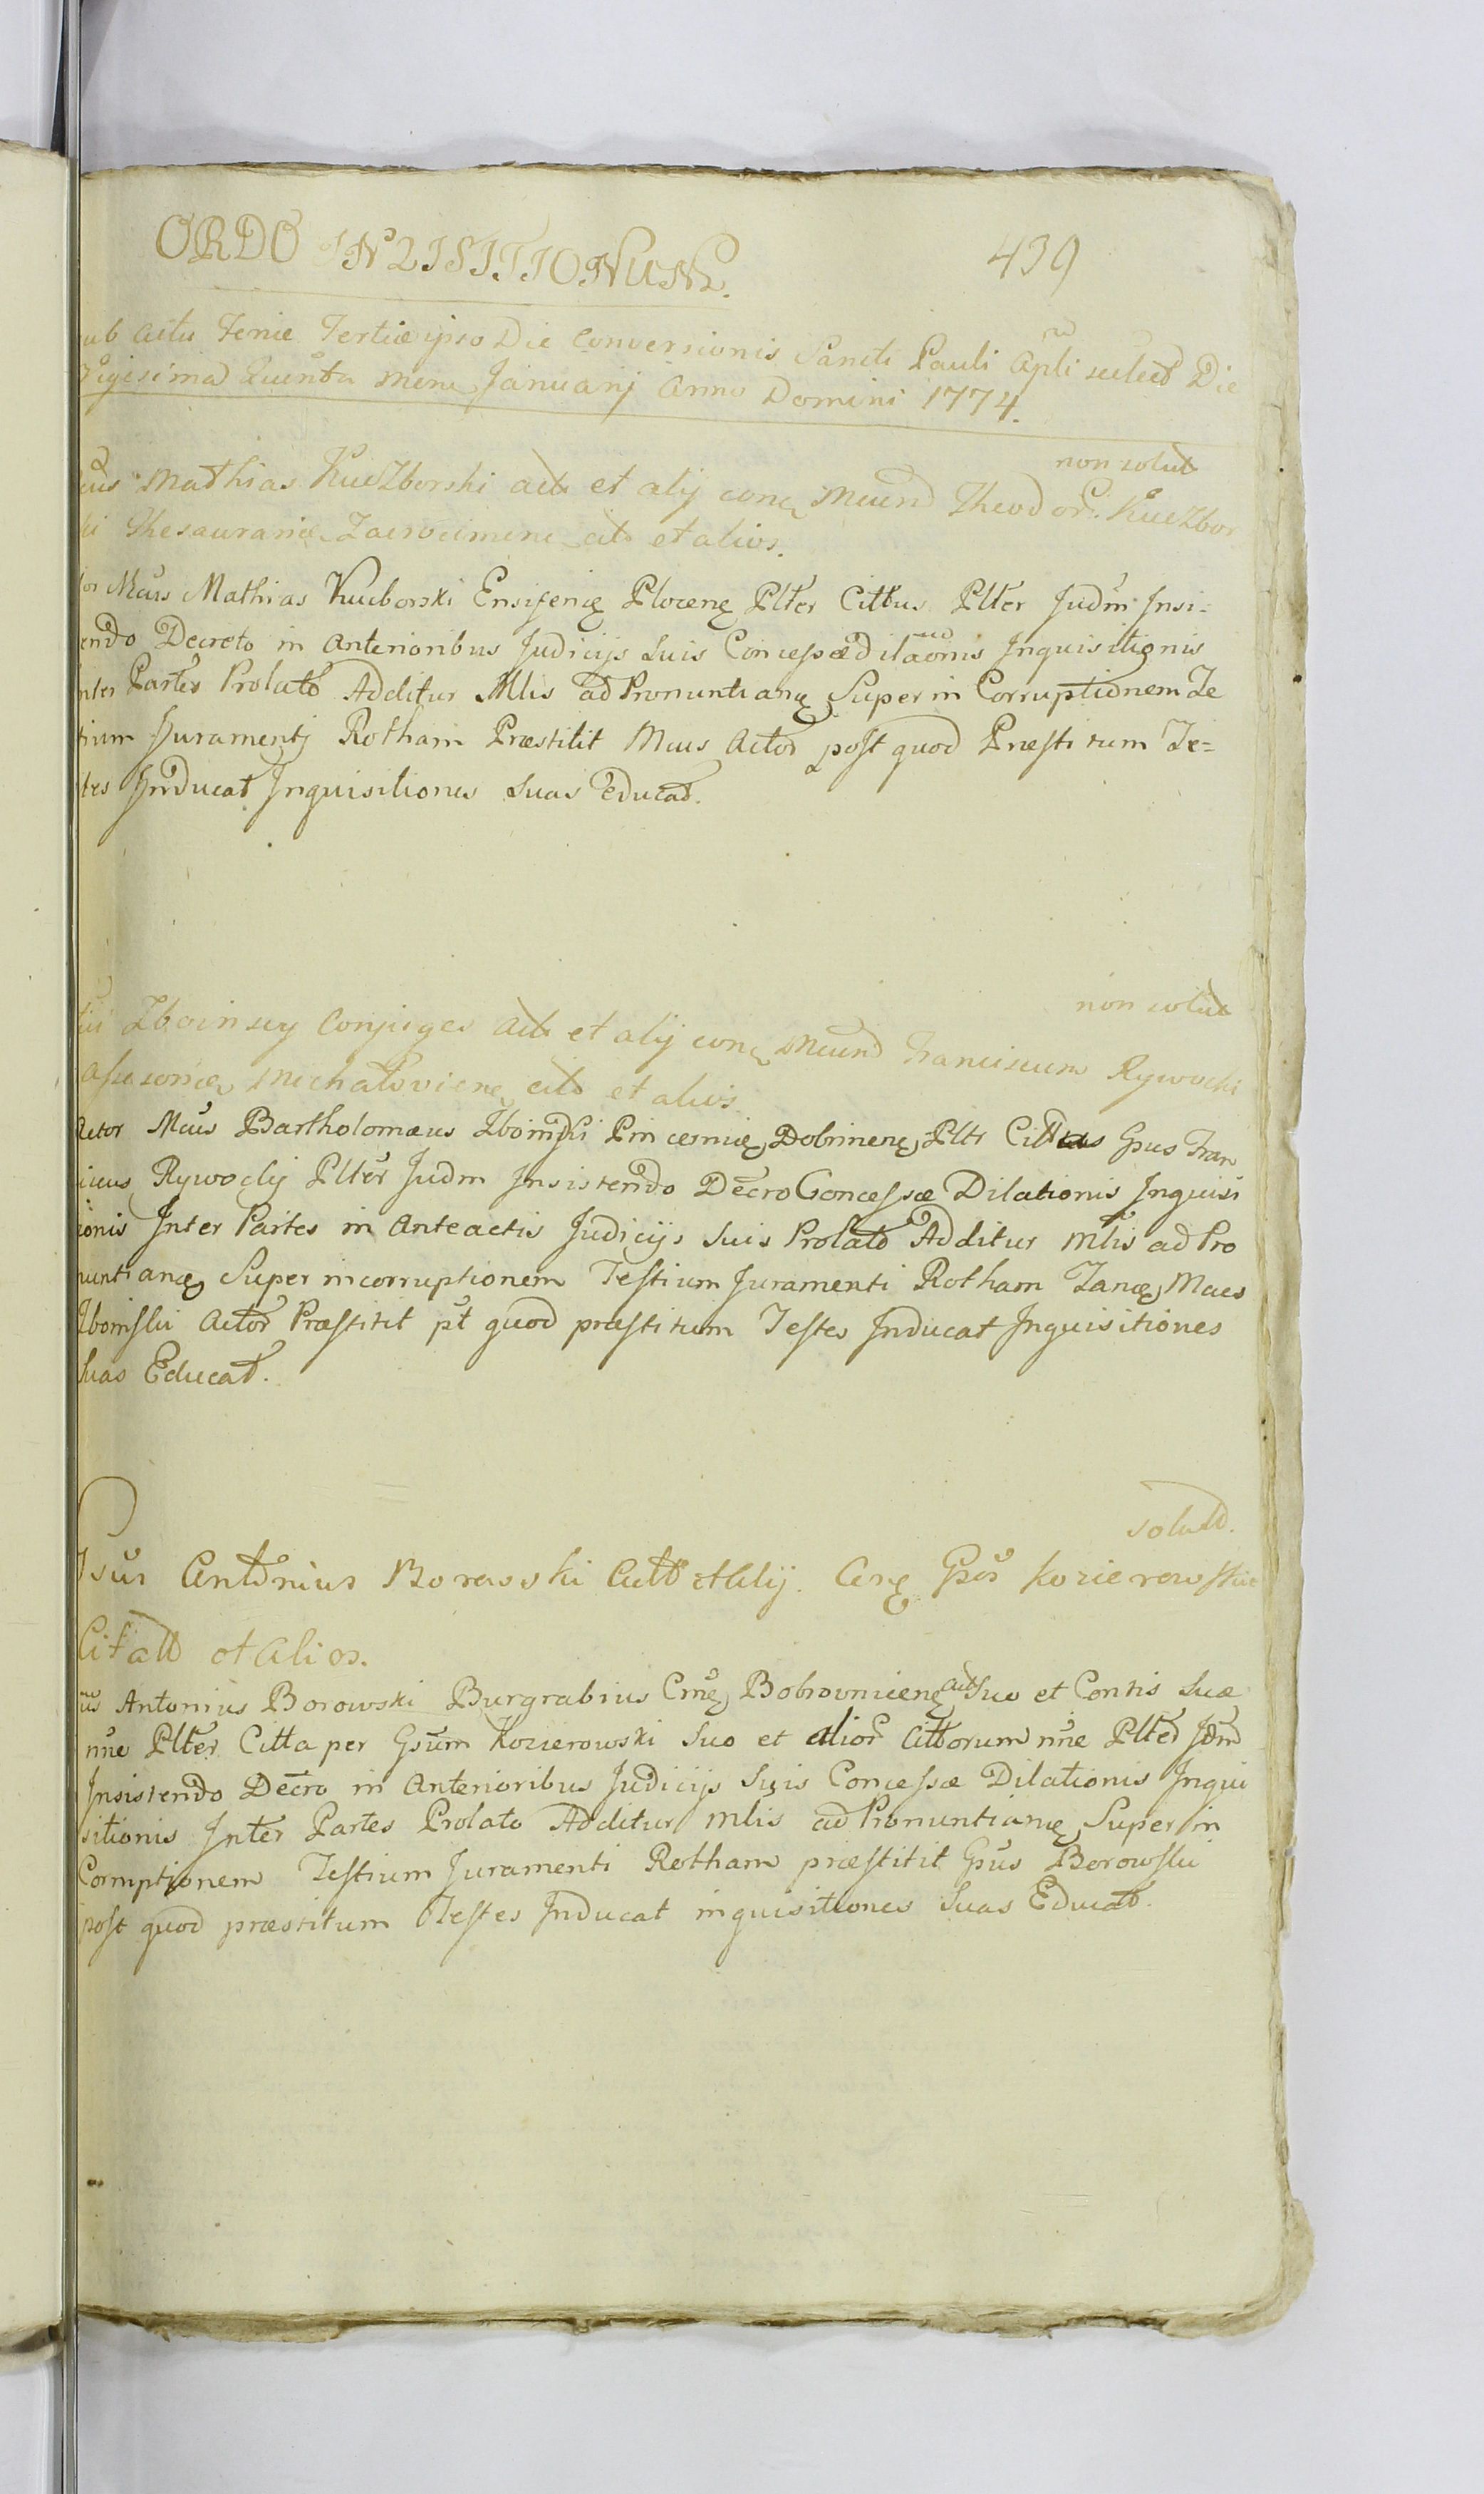 ORDO INQISITIONUM. 439
ub actu Feriæ Tertiæ ipso Die Conversionis Sancti Pauli Apli scilicet Die
Vigesima Quinta Mens Januarij Anno Domini 1774.
non solut
Mathias Kuczborski act et alij conę Mcum Theodor Kuczbor
ki Thesaurariæ Zacroeimene cit et alios.
or Mcus Mathias Kucborski Ensiferię Plocenę Plter Cittus Plter Judm Insi-
endo Decreto in Anterioribus Judicijs Suis Concessæ dilaõnis Inquisitionis
nter Partes Prolato Additur Mlis ad Pronuntianę Super in Corruptionem Te
tium Juramentj Rotham Præstitit Mcus Actor post quod Præstitum Te-
tes Inducat Inquisitiones Suas Educat.
non solut
Zboinscy Conjuges act et alij conę Mcum Franciscum Rywocki
Assesorię Michaloviene cit et alios.
Actor Mcus Bartholomæus Zboinski Pincernię Dobrinenę Pltr Cittus Gsus Fran
iscus Rywocky Plter Judm Insistendo Decro Concessæ Dilationis Inquisi
ionis Inter Partes in Anteactis Judicijs Suis Prolato Additur Mlis ad Pro
nuntianę Super incorruptionem Testium Juramenti Rotham Zanę Mcus
Zboinski Actor Præstitit pt quod præstitum Testes Inducat Inquisitiones
Suas Educat.
solutt.
Gsus Antonius Borowski Actt et Alij. Conę Gsos Kozierowskie
Citatt et Alios.
us Antonius Borowski Burgrabius Cmę Bobrovnicenę act Suo et Contis Suæ
nne Plter Citta per Gsum Kozierowski Suo et alior Cittorum nne Plter Jdm
Insistendo Decro in Anterioribus Judicijs Suis Concessæ Dilationis Inqui
sitionis Inter Partes Prolato Additur Mlis ad Pronuntianę Super in
Corruptionem Testium Juramenti Rotham præstitit Gsus Borowski
post quod præstitum Testes Inducat inquisitiones Suas Educat.